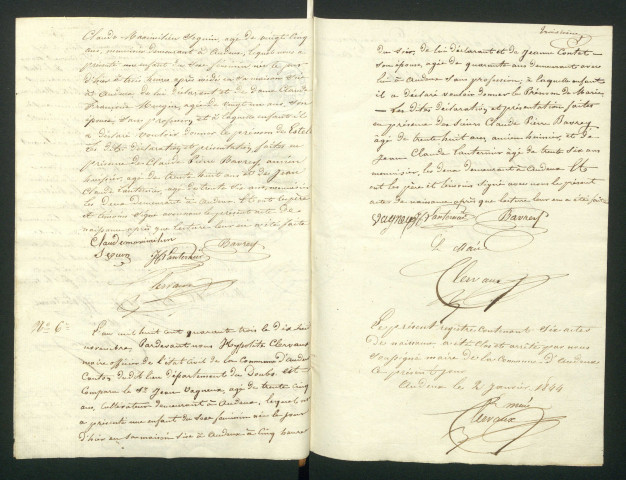 Claude Maximilien Seguin, agé de vingt cinq
ans, menuisier demeurant à Audeux, lequel nous a
présenté un enfant du sexe féminin née le jour
d'hier à trois heures après midi en sa maison sise
à Audeux, de lui déclarant et de dame Claude
Françoise agée de vingt neuf ans, son
épouse, sans profession, et à laquelle enfant il
a déclaré vouloir donner le prénom de
Les dites déclaration et présentation, faites en
présence de Claude Pierre Bavrey, ancien
huissier, agé de trente huit ans et de Jean
Claude Lanternier, agé de trente six ans, menuisier
les deux demeurant à Audeux. Et ont le père
et témoins signé avec nous le présent acte de
naissance après que lecture leur en a été faite
Claude maximilien
Seguin JC Lanternier Bavrey
Clervaux
N° 6e
L'an mil huit cent quarante trois le dix huit
novembre, Pardevant nous Hyppolite Clervaux
maire officier de l'état civil de la Commune d'Audeux
Canton dudit lieu département du Doubs est
Comparu le Sr Jean Vagneux, agé de trente cinq
ans, cultivateur demeurant à Audeux, lequel nous
a présenté une enfant du sexe féminin née le jour
d'hier en sa maison sise à Audeux à cinq heures
du soir, de lui déclarant et de Jeanne Contet
son épouse, agée de quarante ans demeurant avec
lui à Audeux sans profession, à laquelle enfant
il a déclaré vouloir donner le Prénom de Marie
Les dites déclaration et présentation faites
en présence des sieurs Claude Pierre Bavrey
agé de trente huit ans ancien huissier, et de
Jeanne Claude Lanternier agé de trente six ans
menuisier, les deux demeurant à Audeux Et
ont les père et témoins signé avec nous le présent
acte de naissance après que lecture leur en a été faite
JC Lanternier Bavrey
Le Maire
Clervaux
Le présent registre contenant six actes
de naissance a été clos et arrêté par nous
soussigné maire de la commune d'Audeux
Audeux le 2 janvier 1844
Le maire
Clervaux